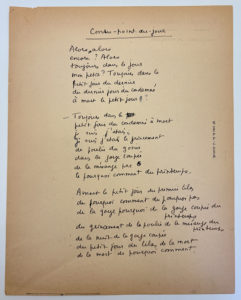 Contre-point-du-jour
Alors, alors
encore ? Alors
toujours dans le jour
mon petit ? Toujours dans le
petit jour du dernier
du dernier jour du condamné
à mort le petit jour ?
— Toujours dans le
petit jour du condamné à mort
j'y suis j'étais
j'y suis j'étais le grincement
de poulie du gosier
dans la gorge coupée
de la mésange par
le pourquoi comment du printemps.
Avant le petit jour du premier lilas
du pourquoi comment du pourquoi pas
de la gorge pourquoi de la gorge coupée du
printemps
du grincement de la poulie de la mésange du
printemps
de la nuit de la gorge coupée
du petit jour du lilas de la mort
de la mort de pourquoi comment.